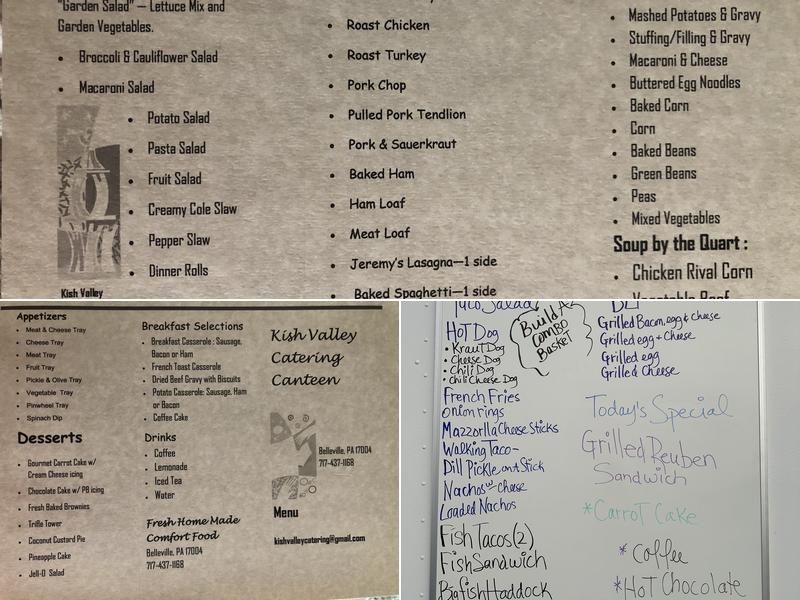 "Garden Salad" — Lettuce Mix and
Garden Vegetables.
• Broccoli & Cauliflower Salad
• Macaroni Salad
• Potato Salad
• Pasta Salad
• Fruit Salad
• Creamy Cole Slaw
• Pepper Slaw
• Dinner Rolls
Kish Valley
• Roast Chicken
• Roast Turkey
• Pork Chop
• Pulled Pork Tendlion
• Pork & Sauerkraut
• Baked Ham
• Ham Loaf
• Meat Loaf
• Jeremy's Lasagna—1 side
• Baked Spaghetti—1 side
• Mashed Potatoes & Gravy
• Stuffing/Filling & Gravy
• Macaroni & Cheese
• Buttered Egg Noodles
• Baked Corn
• Corn
• Baked Beans
• Green Beans
• Peas
• Mixed Vegetables
Soup by the Quart :
• Chicken Rival Corn
Vegetable Beef
Appetizers
• Meat & Cheese Tray
• Cheese Tray
• Meat Tray
• Fruit Tray
• Pickle & Olive Tray
• Vegetable Tray
• Pinwheel Tray
• Spinach Dip
Desserts
• Gourmet Carrot Cake w/
Cream Cheese icing
• Chocolate Cake w/ PB icing
• Fresh Baked Brownies
• Trifle Tower
• Coconut Custard Pie
• Pineapple Cake
• Jell-O Salad
Breakfast Selections
• Breakfast Casserole : Sausage,
Bacon or Ham
• French Toast Casserole
• Dried Beef Gravy with Biscuits
• Potato Casserole: Sausage, Ham
or Bacon
• Coffee Cake
Drinks
• Coffee
• Lemonade
• Iced Tea
• Water
Fresh Home Made
Comfort Food
Belleville, PA 17004
717-437-1168
Kish Valley
Catering
Canteen
Belleville, PA 17004
717-437-1168
Menu
kishvalleycatering@gmail.com
Taco Salad
HOT Dog
• Kraut Dog
• Cheese Dog
• Chili Dog
• Chili Cheese Dog
French Fries
Onion rings
Mazzorlla Cheese Sticks
Walking Taco-
Dill Pickle on A Stick
Nachos w- Cheese
Loaded Nachos
Fish Tacos (2)
Fish Sandwich
Big fish Haddock
Build A
Combo
Basket
Grilled Bacon, egg & cheese
Grilled egg + Cheese
Grilled egg
Grilled Cheese
Today's Special
Grilled Reuben
Sandwich
*Carrot Cake
* Coffee
*Hot Chocolate